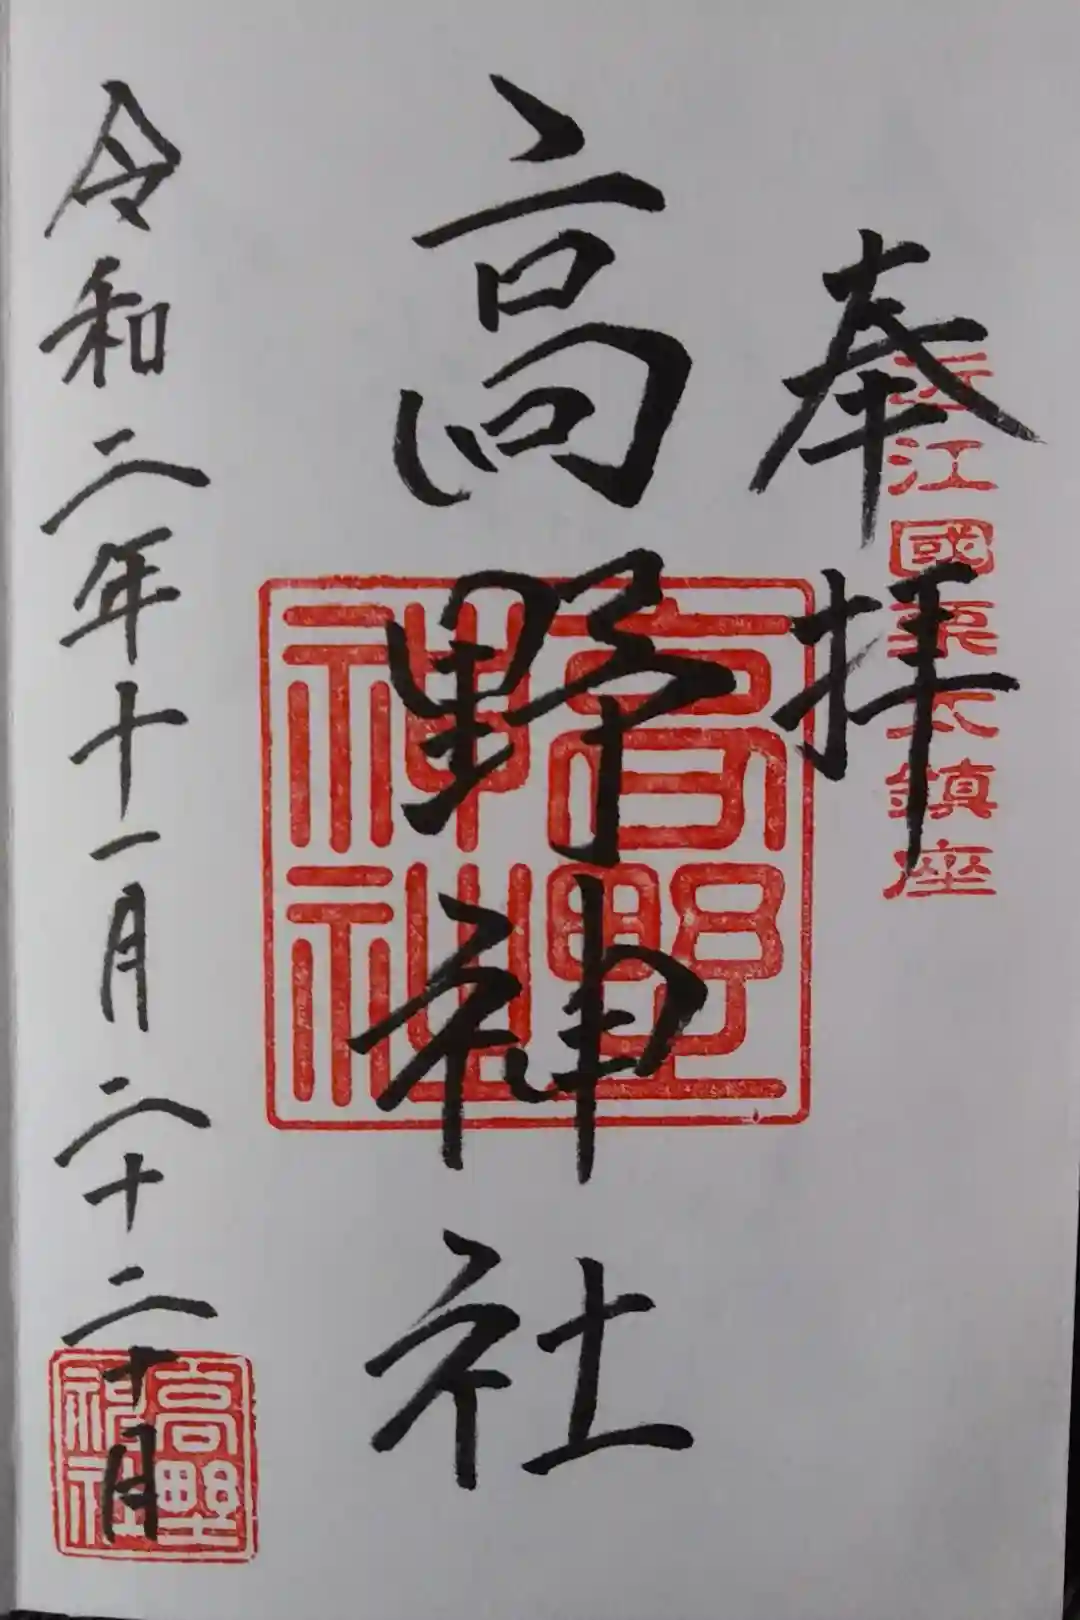 奉拝
近江國栗太鎮座
高野神社
高野神社
令和二年十一月二十二十月
高野神社